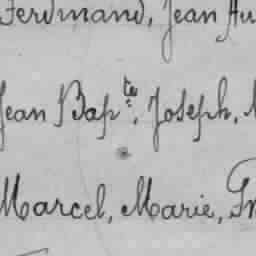 Ferdinand, Jean
Jean Bap.te, Joseph,
Marcel, Marie,